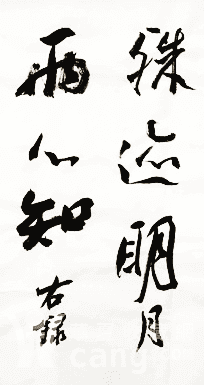 殊迹明月
两心知
右録